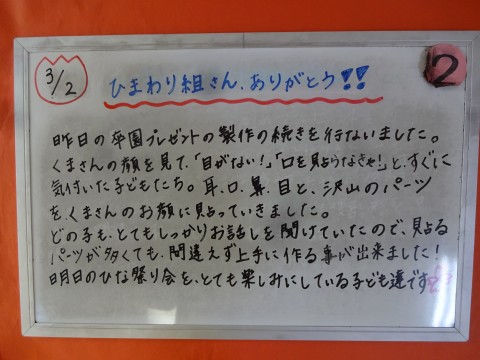 3/2
ひまわり組さん、ありがとう!!
2
昨日の卒園プレゼントの製作の続きを行ないました。
くまさんの顔を見て、「目がない!」「口を貼らなきゃ!」と、すぐに
気付いた子どもたち。耳、口、鼻、目と、沢山のパーツ
を、くまさんのお顔に貼っていきました。
どの子も、とてもしっかりお話しを聞けていたので、貼る
パーツが多くても、間違えず上手に作る事が出来ました!
明日のひな祭り会を、とても楽しみにしている子ども達です